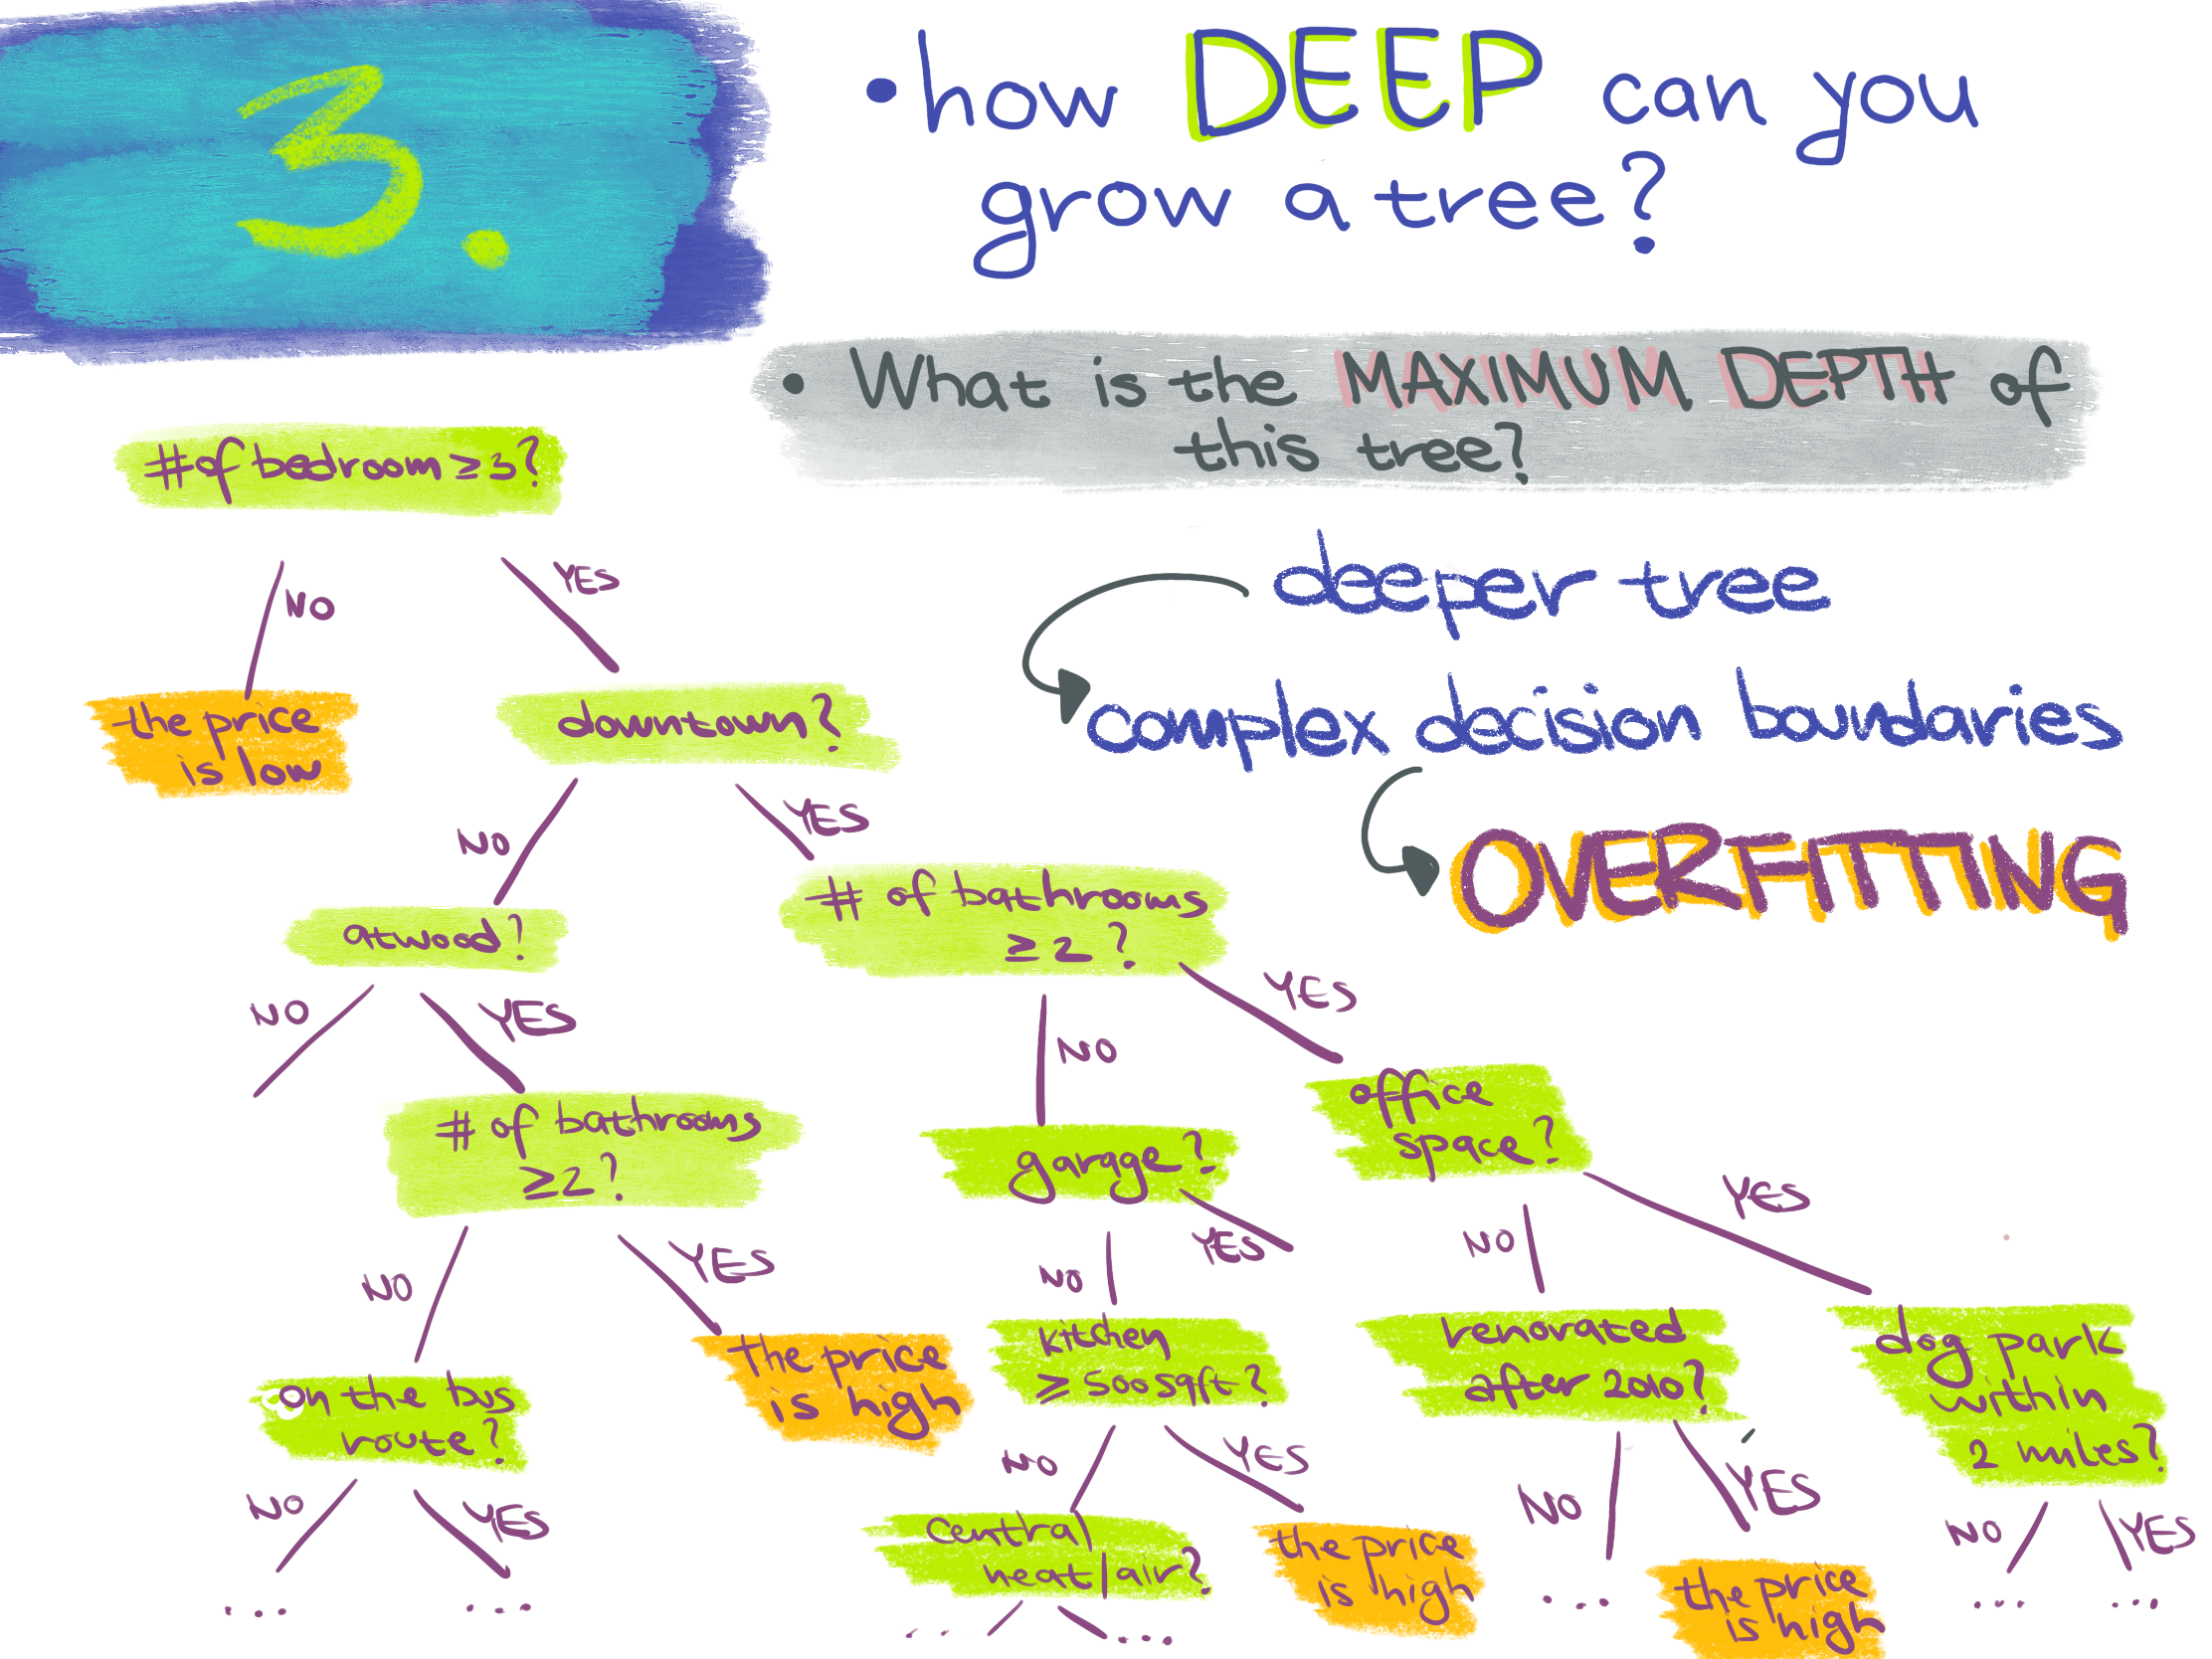 3.
• how DEEP can you
grow a tree?
• What is the MAXIMUM DEPTH of
this tree?
deeper tree
complex decision boundaries
OVERFITTING
# of bedroom ≥ 3?
NO
YES
the price
is low
downtown?
NO
YES
atwood?
# of bathrooms
≥ 2 ?
NO
YES
NO
YES
# of bathrooms
≥2 ?
garage?
office
space?
NO
YES
NO
YES
NO
YES
on the bus
route?
the price
is high
kitchen
≥ 500 sqft?
renovated
after 2010?
dog park
within
2 miles?
NO
YES
NO
YES
NO
YES
NO
YES
...
...
central
heat/air?
the price
is high
...
the price
is high
...
...
...
...